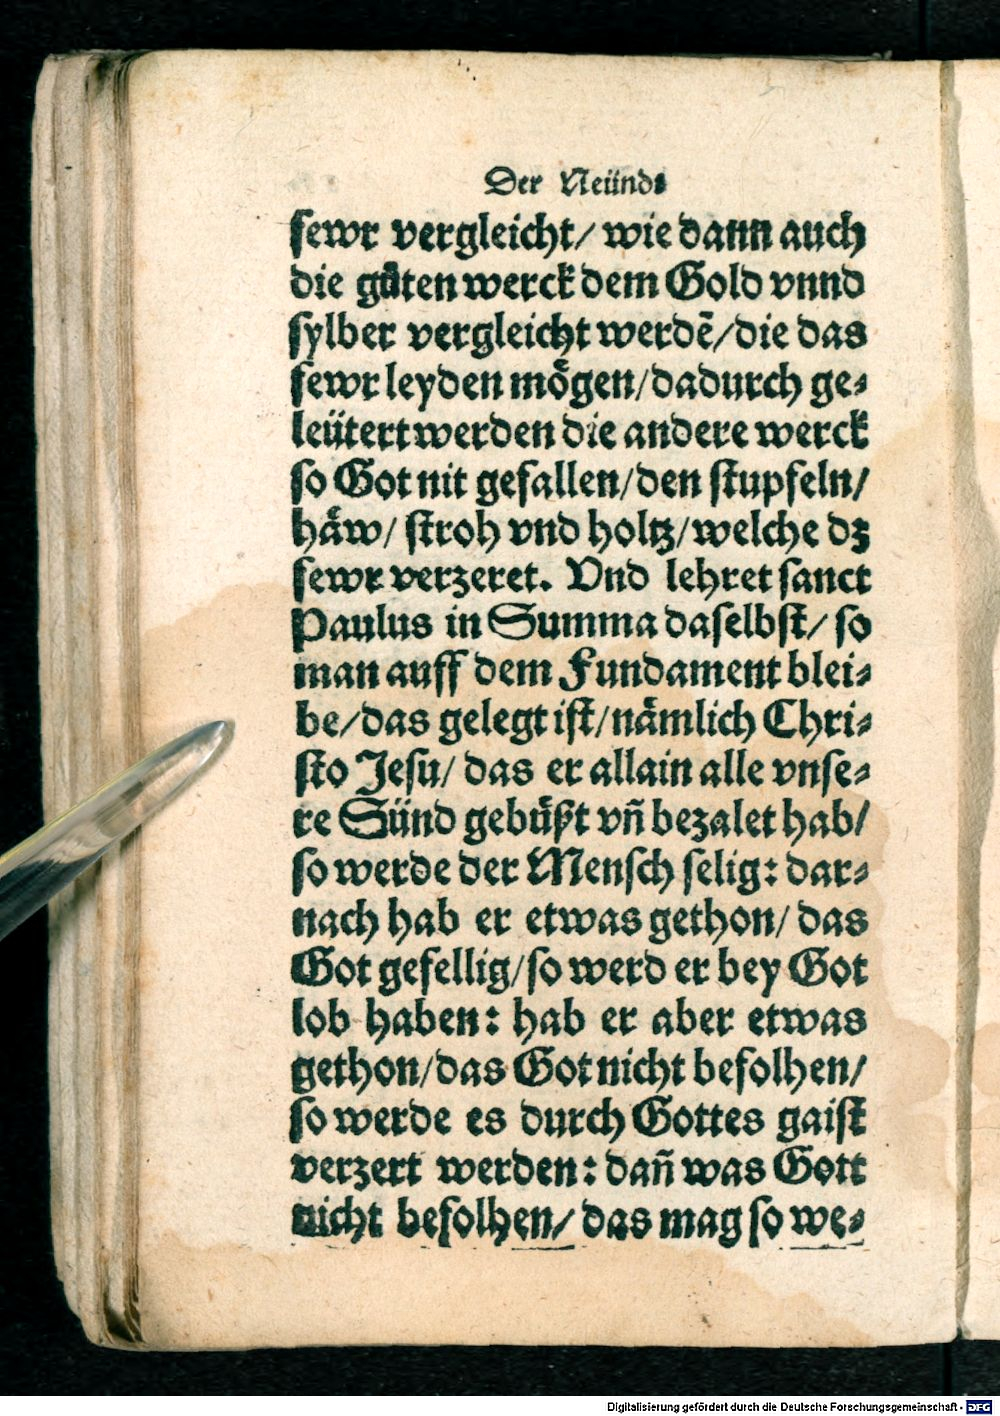 Der Neünd
fewr vergleicht/ wie dann auch
die gůten werck dem Gold vnnd
sylber vergleicht werdẽ/die das
fewr leyden mögen/dadurch ge⸗
leütert werden die andere werck
so Got nit gefallen/den stupfeln/
häw/ stroh vnd holtz/welche dz
fewr verzeret. Vnd lehret sanct
Paulus in Summa daselbst/ so
man auff dem Fundament blei⸗
be/das gelegt ist/nämlich Chri⸗
sto Jesu/ das er allain alle vnse⸗
re Sünd gebüßt vñ bezalet hab/
so werde der Mensch selig: dar⸗
nach hab er etwas gethon/ das
Got gefellig/so werd er bey Got
lob haben: hab er aber etwas
gethon/das Got nicht befolhen/
so werde es durch Gottes gaist
verzert werden: dañ was Gott
nicht befolhen/ das mag so we⸗
Digitalisierung gefördert durch die Deutsche Forschungsgemeinschaft - DFG